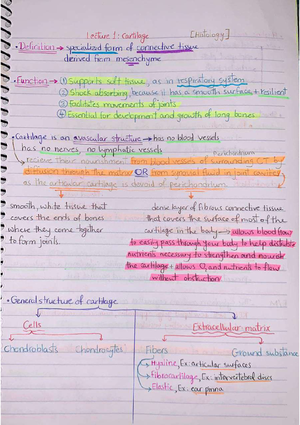 Lecture 1: cartilage [Histology]
• Definition → specialised form of connective tissue
derived from mesenchyme
• Function → ① Supports soft tissue, as in respiratory system
② Shock absorbing, because it has a smooth surface + resilient
③ Facilitates movements of joints
④ Essential for development and growth of long bones
• Cartilage is an avascular structure → has no blood vessels
has no nerves, no lymphatic vessels
Perichondrium
recieve their nourishment from blood vessels of surrounding C.T by
diffusion through the matrix OR from synovial fluid in joint cavities
as the articular cartilage is devoid of perichondrium
smooth, white tissue that
covers the ends of bones
where they come together
to form joints.
dense layer of fibrous connective tissue
that covers the surface of most of the
cartilage in the body → allows blood flow
to easily pass through your body to help distribute
nutrients necessary to strengthen and nourish
the cartilage + allows O₂ and nutrients to flow
without obstruction
• General structure of cartilage
Cells Extracellular matrix
Chondroblasts Chondrocytes Fibers Ground substance
Hyaline, Ex: articular surfaces
Fibrocartilage, Ex: intervertebral discs
Elastic, Ex: ear pinna